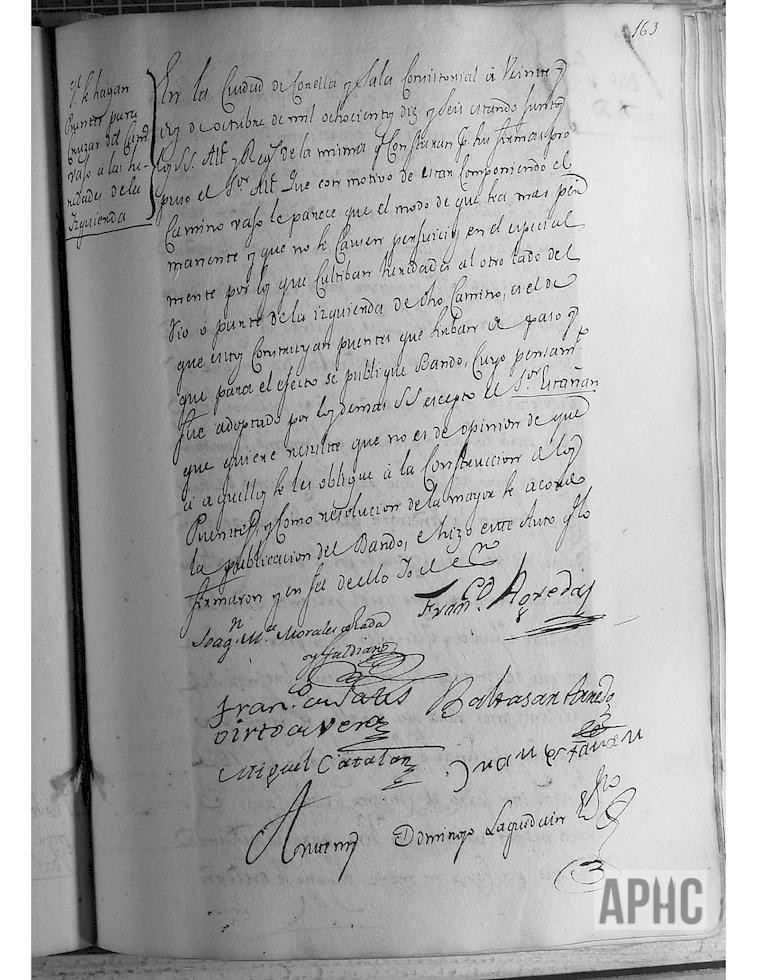 163
q.e se hagan
Puentes para
cruzar del Cam.o
vajo a las he-
redades de la
Izquierda
En la Ciudad de Corella y Sala Consistorial a Veinte y
seis de octubre de mil ochocientos diez y seis estando juntos
los SS. Alc.e y Reg.s de la misma q.e Constaran p.r sus firmas pro
puso el S.or Alc.e Que con motivo de estar Componiendo el
Camino vajo le parece que el modo de que sea mas per
manente y que no se Causen perjuicios en el especial
mente por los que Cultiban heredades al otro lado del
Rio o parte de la izquierda de dho Camino, es el de
que estos Construyan puentes que sirban de paso y
que para el efecto se publique Bando, Cuyo pensam.to
fue adoptado por los demas SS escepto el S.or Estañan
que quiere resulte que no es de opinion de que
a aquellos se les oblique a la Construccion de los
Puentes, y Como resolucion de la mayor se acordo
la publicacion del Bando, e hizo este Auto q.e lo
firmaron y en fee de ello Yo el es.no
Fran.co Agreda
Joaq.n M.a Morales de Rada
y
Fran.co de Sales
Virto de Vera
Baltasar Arnedo
Miguel Catalan
Juan Estañan
Antemi Domingo Laquidain